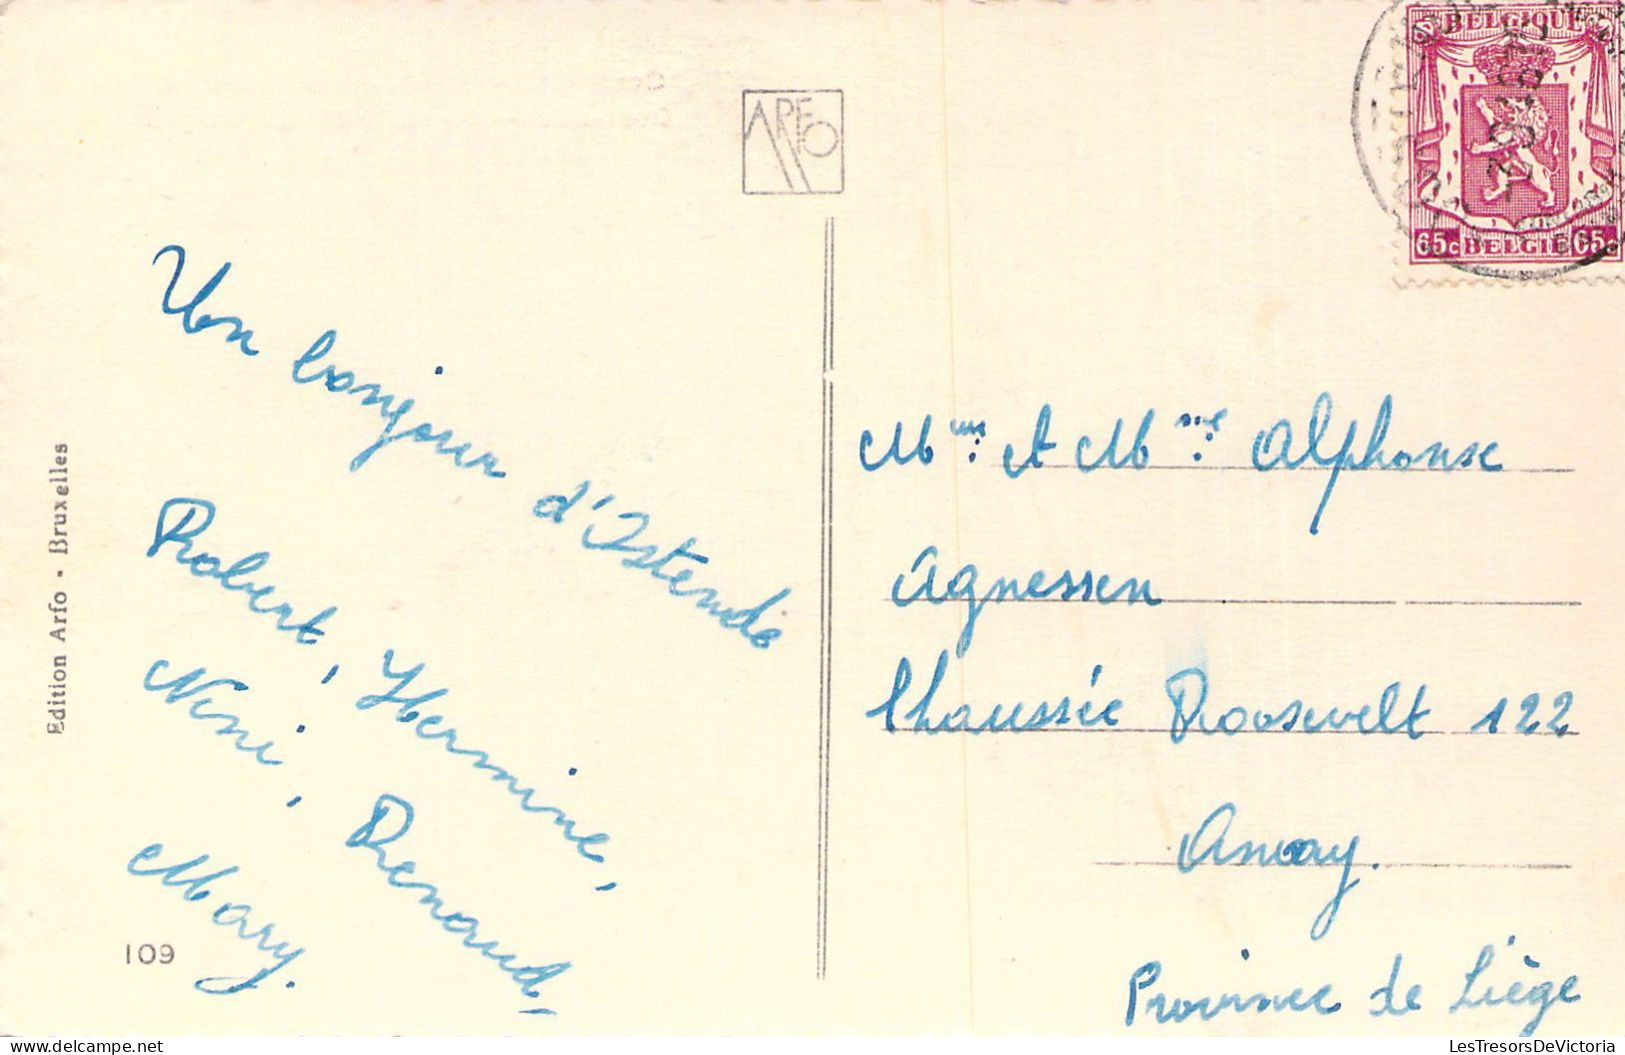 ARFO
BELGIQUE
65c BELGIE 65c
Un bonjour d'Ostende
Robert, Hermine,
Nini, Renaud-
Mary.
109
Edition Arfo - Bruxelles
Mme. et Alphonse
Agnessen
Chaussée Roosevelt 122
Amay.
Province de Liège
delcampe.net
LesTresorsDeVictoria